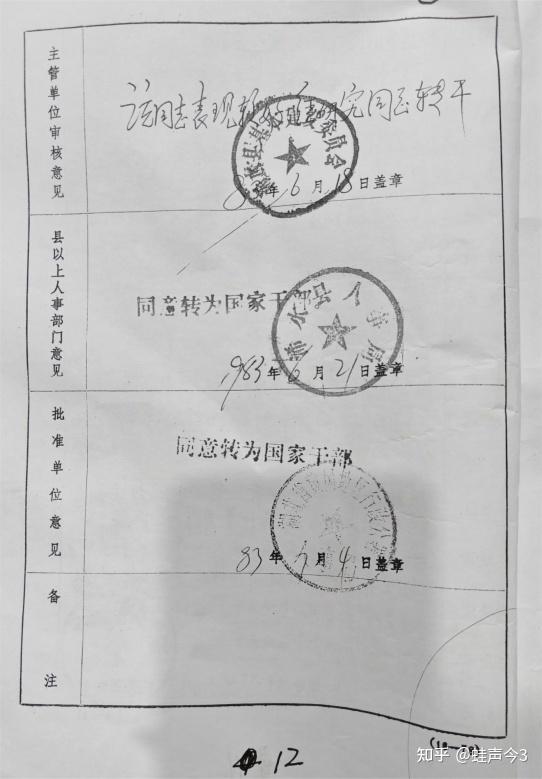 主管单位审核意见
该同志表现较好 研究同意转干
年6月18日盖章
县以上人事部门意见
同意转为国家干部
浠水县人事局
1983年6月21日盖章
批准单位意见
同意转为国家干部
83年7月4日盖章
备注
12
知乎 @蛙声今3